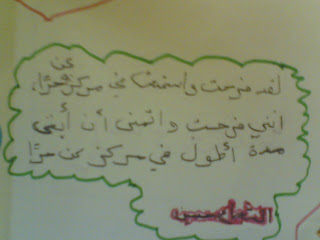 لقد فرحت واستمتعت في مركز عن حرا،
انني فرحت واتمنى أن أبقى
مدة أطول في مركز عن حرا